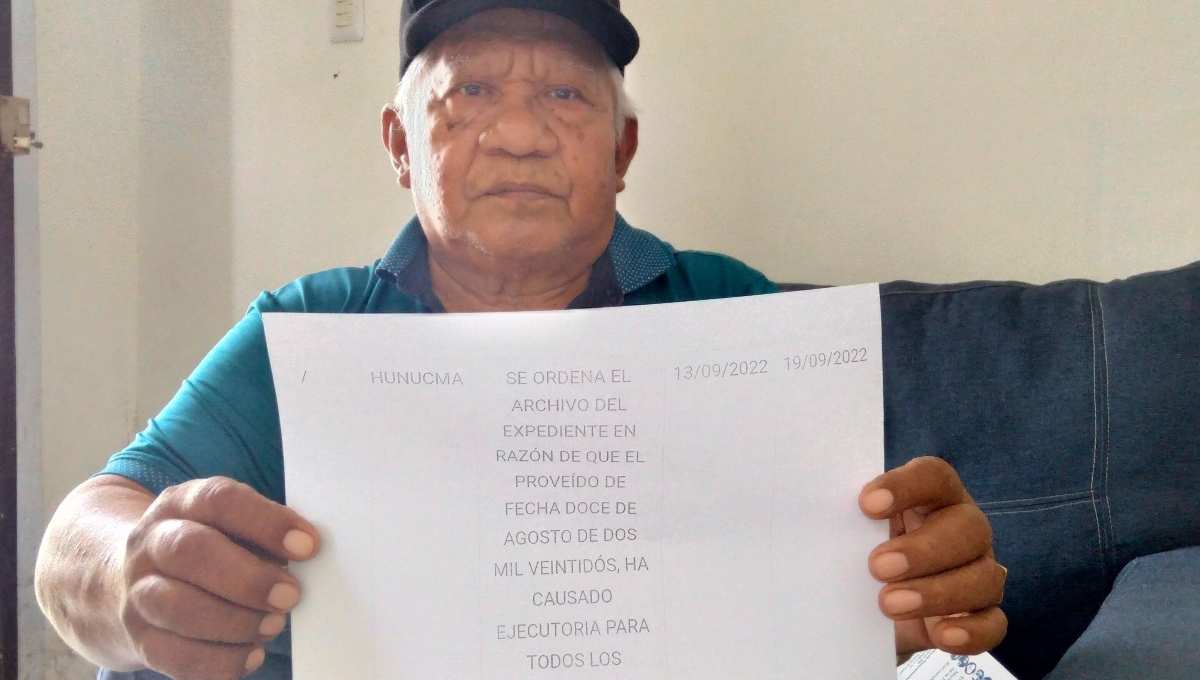 / HUNUCMA SE ORDENA EL 13/09/2022 19/09/2022
ARCHIVO DEL
EXPEDIENTE EN
RAZÓN DE QUE EL
PROVEÍDO DE
FECHA DOCE DE
AGOSTO DE DOS
MIL VEINTIDÓS, HA
CAUSADO
EJECUTORIA PARA
TODOS LOS